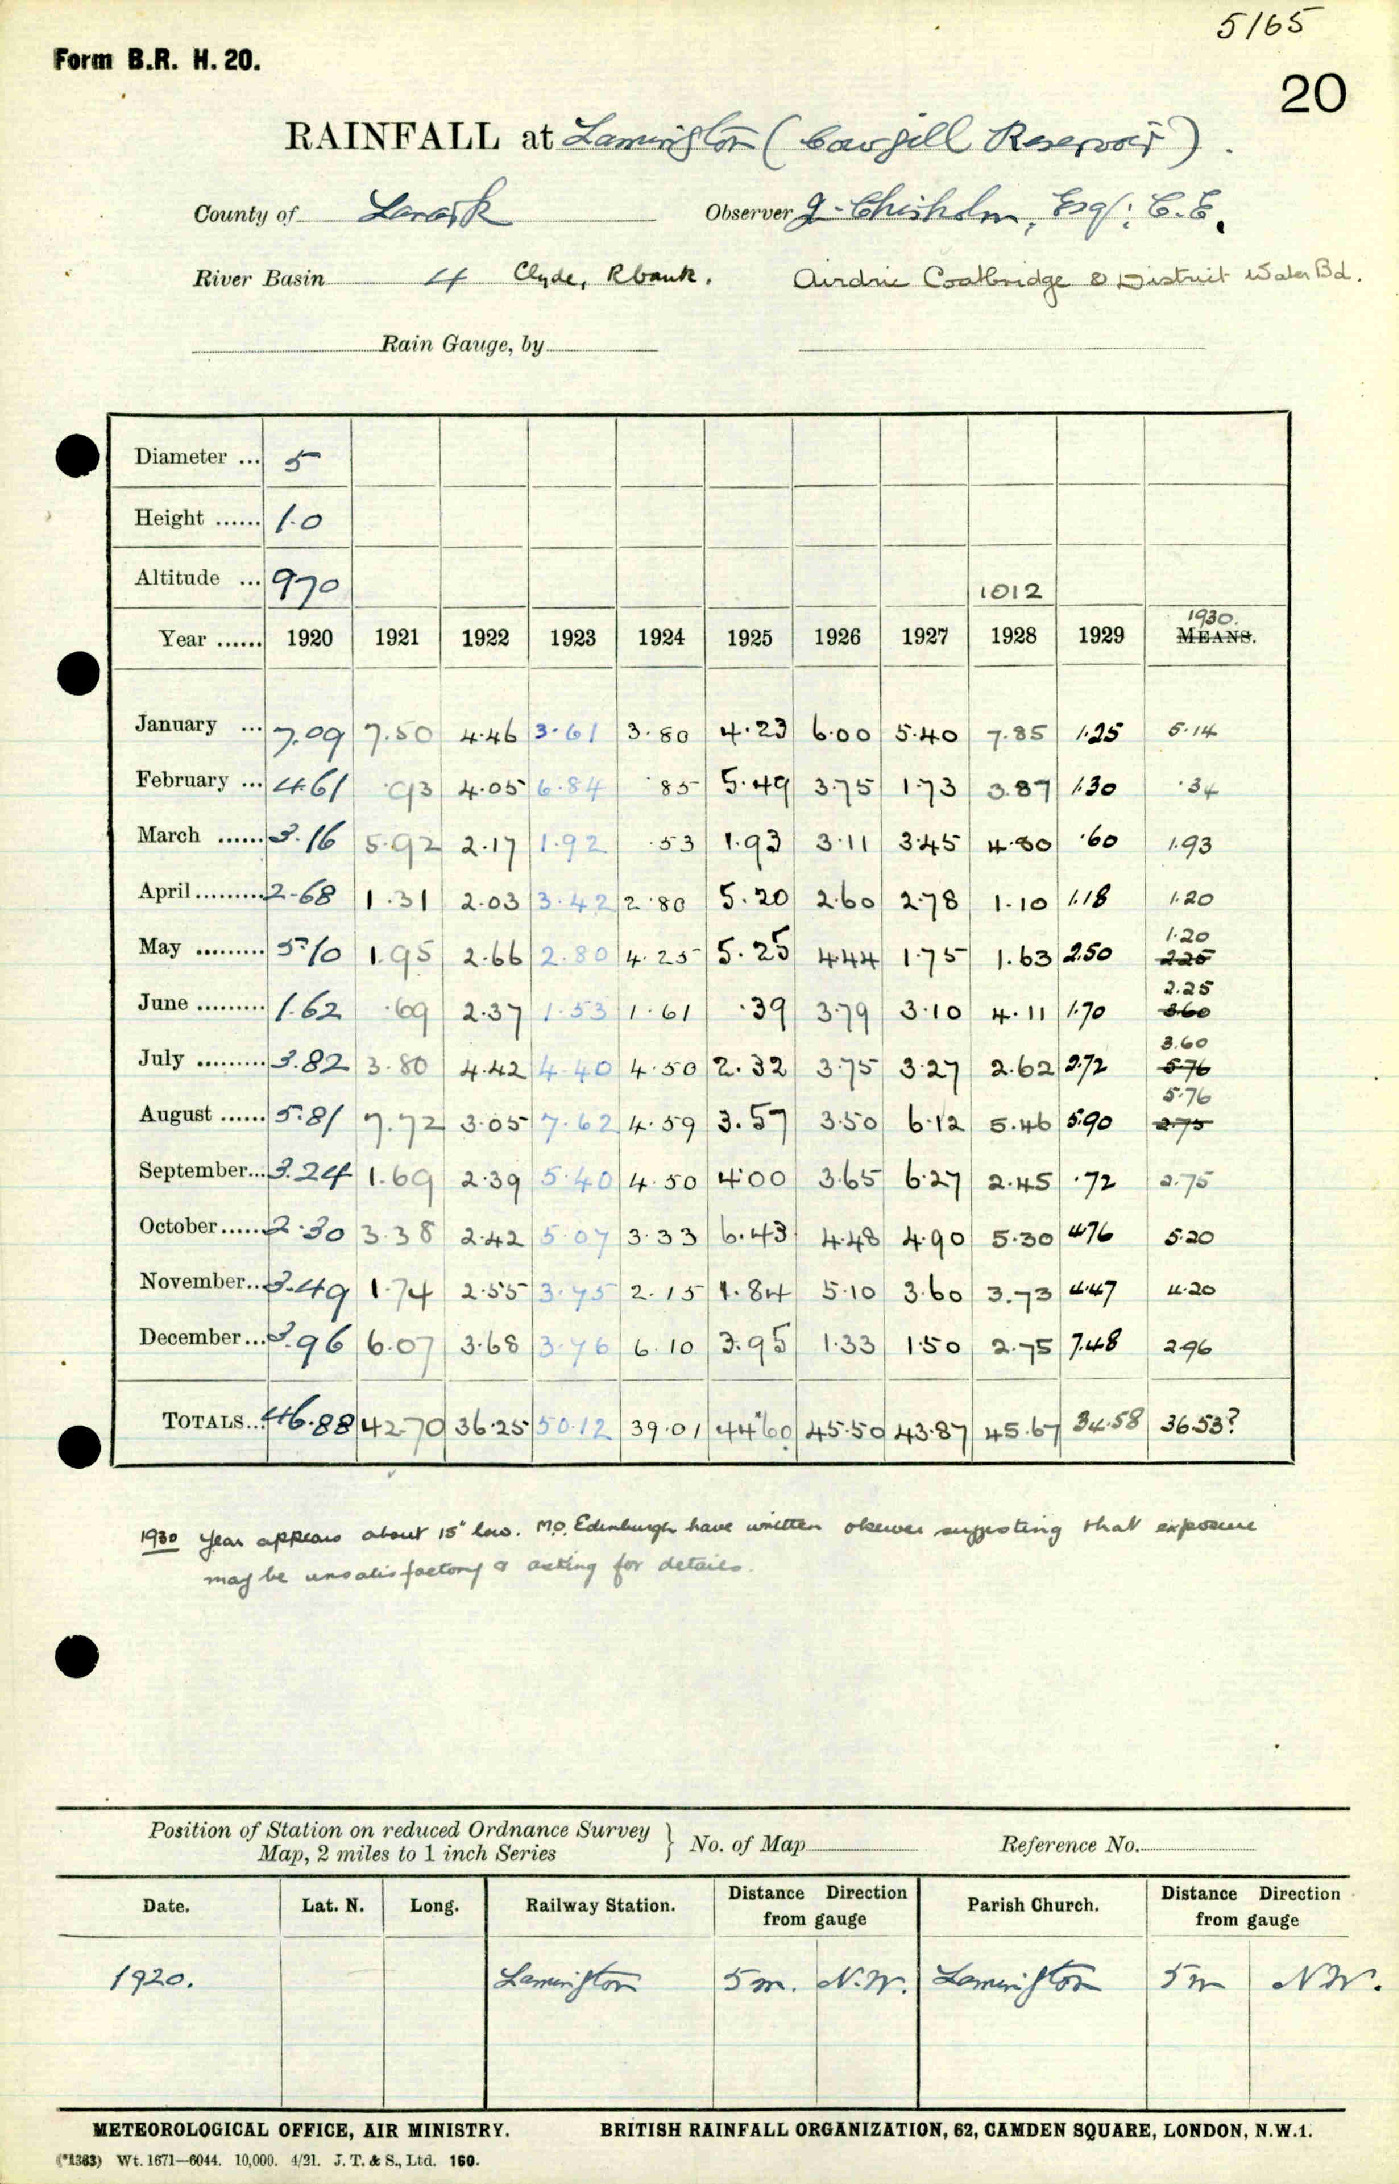 5/65
Form B.R. H. 20.
20
RAINFALL at Lamington (Cowgill Reservoir).
County of Lanark Observer J. Chisholm, Esq: C.E.
River Basin 4 Clyde, R bank. Airdrie Coatbridge & District Water Bd.
Rain Gauge, by
Diameter ... 5
Height ...... 1.0
Altitude ... 970 1012
Year ...... 1920 1921 1922 1923 1924 1925 1926 1927 1928 1929 1930. MEANS.
January ... 7.09 7.50 4.46 3.61 3.80 4.23 6.00 5.40 7.85 1.25 5.14
February ... 4.61 .93 4.05 6.84 .85 5.49 3.75 1.73 3.87 1.30 .34
March ...... 3.16 5.92 2.17 1.92 .53 1.93 3.11 3.45 4.80 .60 1.93
April ......... 2.68 1.31 2.03 3.42 2.80 5.20 2.60 2.78 1.10 1.18 1.20
May ......... 5.10 1.95 2.66 2.80 4.25 5.25 4.44 1.75 1.63 2.50 1.20 2.25
June ......... 1.62 .69 2.37 1.53 1.61 .39 3.79 3.10 4.11 1.70 2.25 3.60
July ......... 3.82 3.80 4.42 4.40 4.50 2.32 3.75 3.27 2.62 2.72 3.60 5.76
August ...... 5.81 7.72 3.05 7.62 4.59 3.57 3.50 6.12 5.46 5.90 5.76 2.75
September... 3.24 1.69 2.39 5.40 4.50 4.00 3.65 6.27 2.45 .72 2.75
October...... 2.30 3.38 2.42 5.07 3.33 6.43 4.48 4.90 5.30 4.76 5.20
November... 3.49 1.74 2.55 3.75 2.15 1.84 5.10 3.60 3.73 4.47 4.20
December ... 3.96 6.07 3.68 3.76 6.10 3.95 1.33 1.50 2.75 7.48 2.96
TOTALS... 46.88 42.70 36.25 50.12 39.01 44.60 45.50 43.87 45.67 34.58 36.53?
1930 Year appears about 15" low. M.O. Edinburgh have written observer suggesting that exposure
may be unsatisfactory & asking for details.
Position of Station on reduced Ordnance Survey
Map, 2 miles to 1 inch Series } No. of Map Reference No.
Date. Lat. N. Long. Railway Station. Distance Direction from gauge Parish Church. Distance Direction from gauge
1920. Lamington 5 m. N.W. Lamington 5 m N.W.
METEOROLOGICAL OFFICE, AIR MINISTRY. BRITISH RAINFALL ORGANIZATION, 62, CAMDEN SQUARE, LONDON, N.W.1.
(*1383) Wt. 1671—6044. 10,000. 4/21. J. T. & S., Ltd. 160.